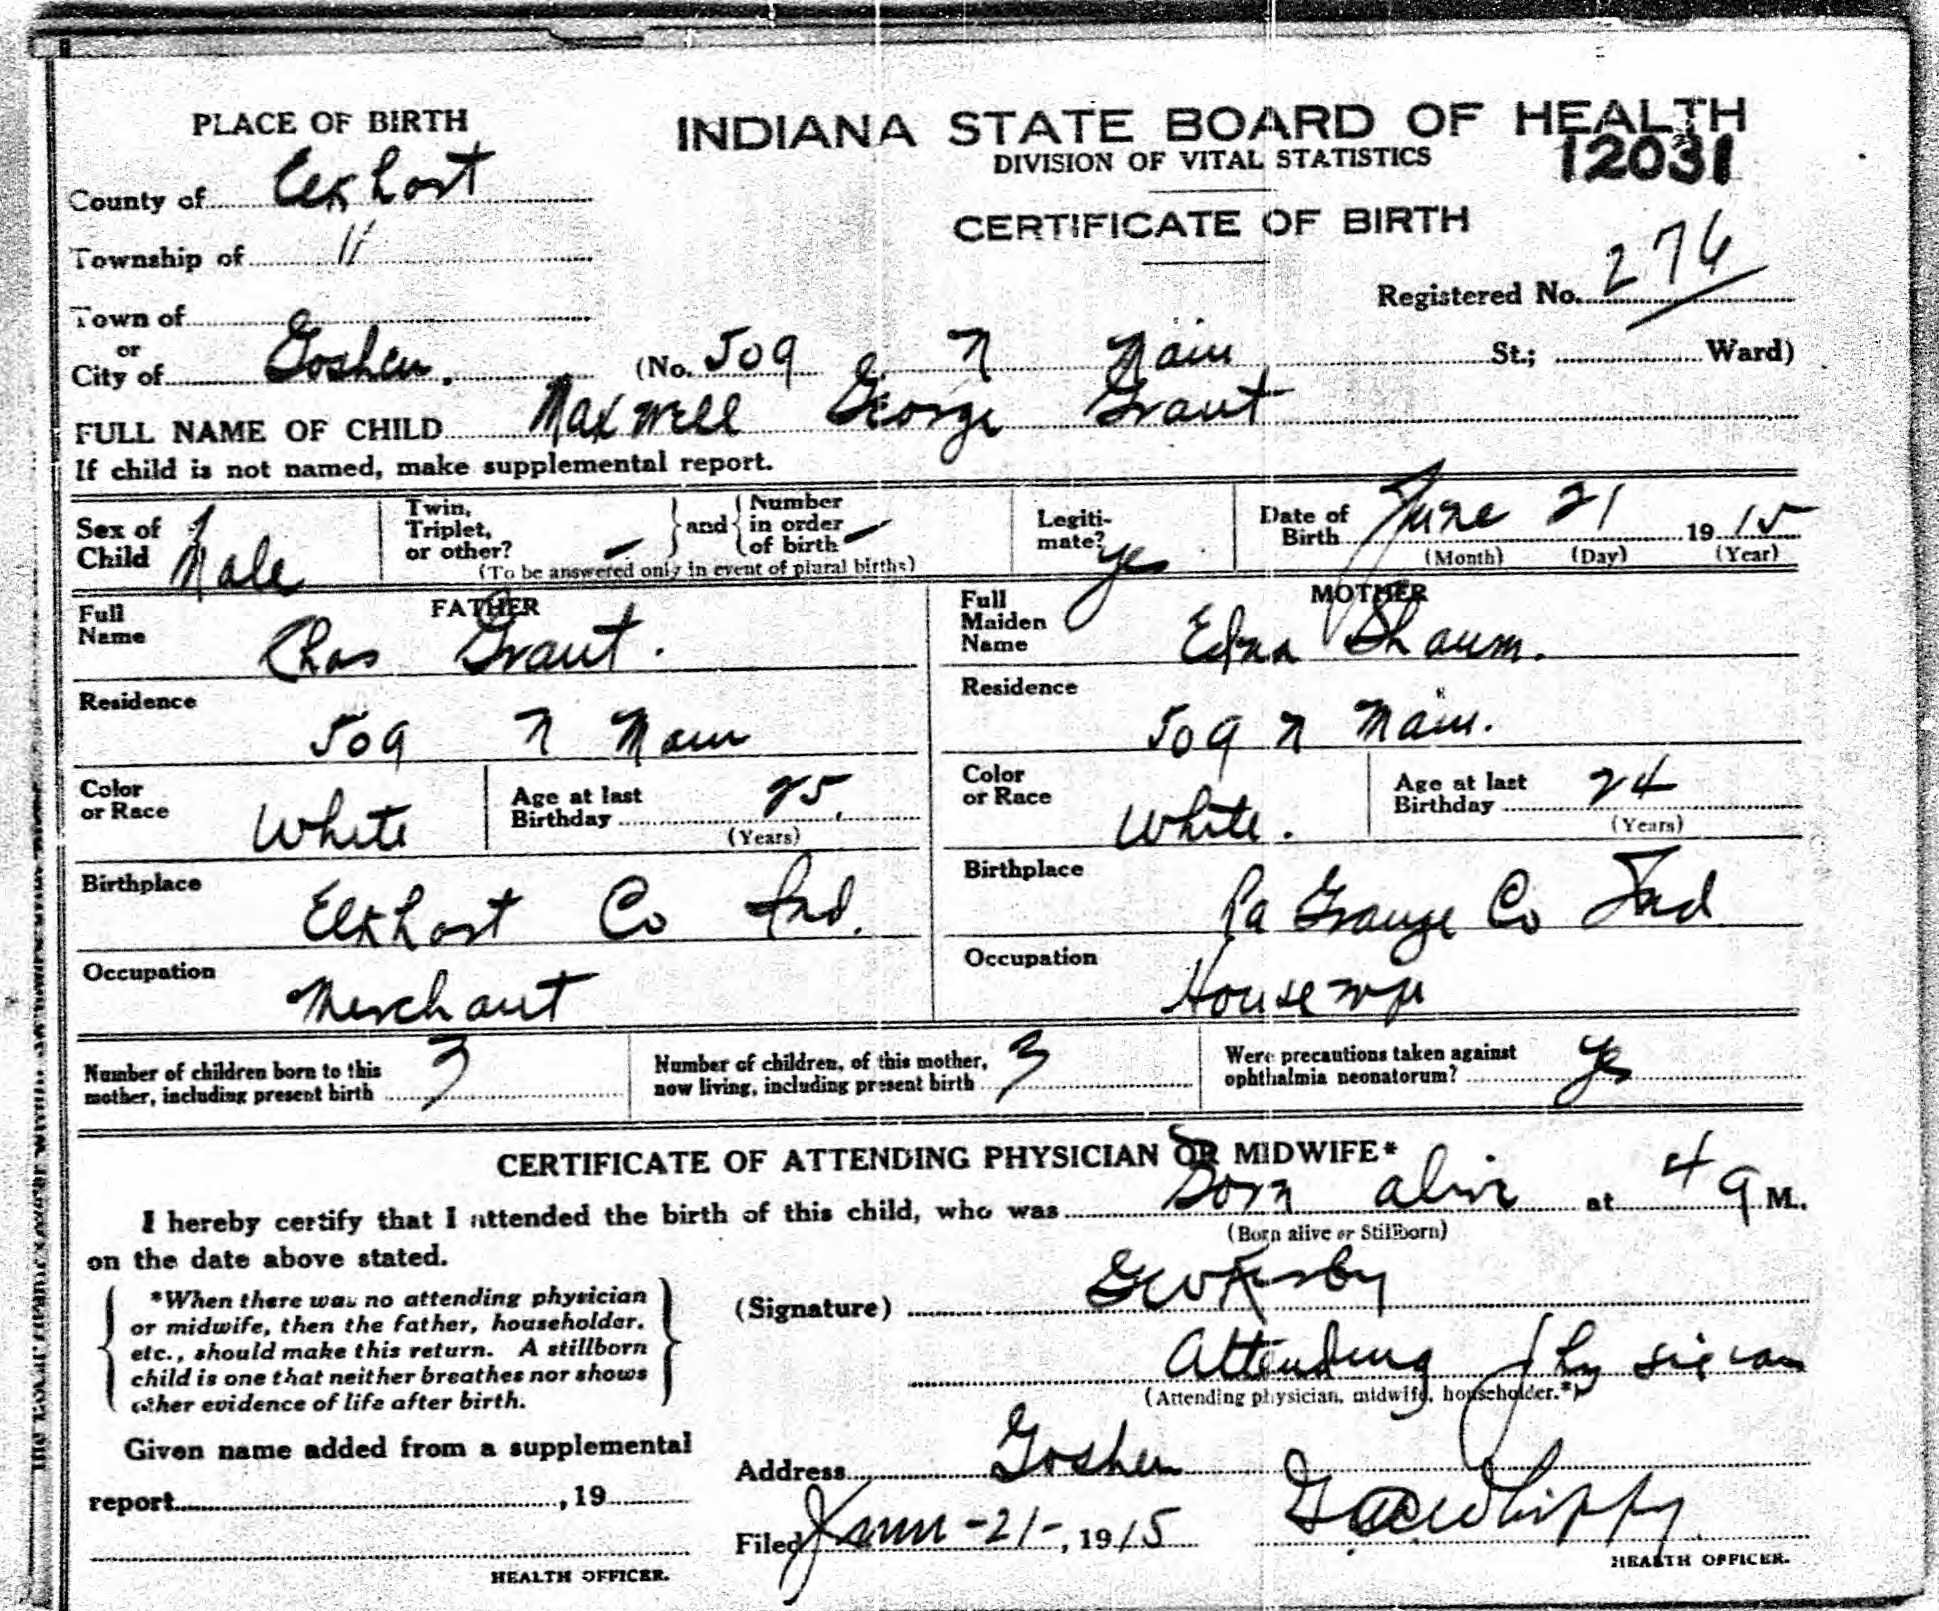 PLACE OF BIRTH
INDIANA STATE BOARD OF HEALTH
DIVISION OF VITAL STATISTICS
12031
County of Elkhart
CERTIFICATE OF BIRTH
Township of "
Registered No. 276
Town of
or
City of Goshen, (No. 509 N Main St.; Ward)
FULL NAME OF CHILD Maxwell George Grant
If child is not named, make supplemental report.
Sex of Child Male
Twin, Triplet, or other? - and Number in order of birth -
(To be answered only in event of plural births)
Legiti-mate? Yes
Date of Birth June 21 1915
(Month) (Day) (Year)
FATHER
Full Name Chas Grant.
MOTHER
Full Maiden Name Edna Shaum.
Residence 509 N Main
Residence 509 N Main.
Color or Race White
Age at last Birthday 25.
(Years)
Color or Race White.
Age at last Birthday 24
(Years)
Birthplace Elkhart Co Ind.
Birthplace La Grange Co Ind
Occupation Merchant
Occupation Housewife
Number of children born to this mother, including present birth 3
Number of children, of this mother, now living, including present birth 3
Were precautions taken against ophthalmia neonatorum? Yes
CERTIFICATE OF ATTENDING PHYSICIAN OR MIDWIFE*
I hereby certify that I attended the birth of this child, who was Born alive at 4 a M.,
(Born alive or Stillborn)
on the date above stated.
*When there was no attending physician
or midwife, then the father, householder,
etc., should make this return. A stillborn
child is one that neither breathes nor shows
other evidence of life after birth.
(Signature)
Attending Physician
(Attending physician, midwife, householder.*)
Given name added from a supplemental
report , 19
HEALTH OFFICER.
Address Goshen
Filed -21-, 1915
Whippy
HEALTH OFFICER.